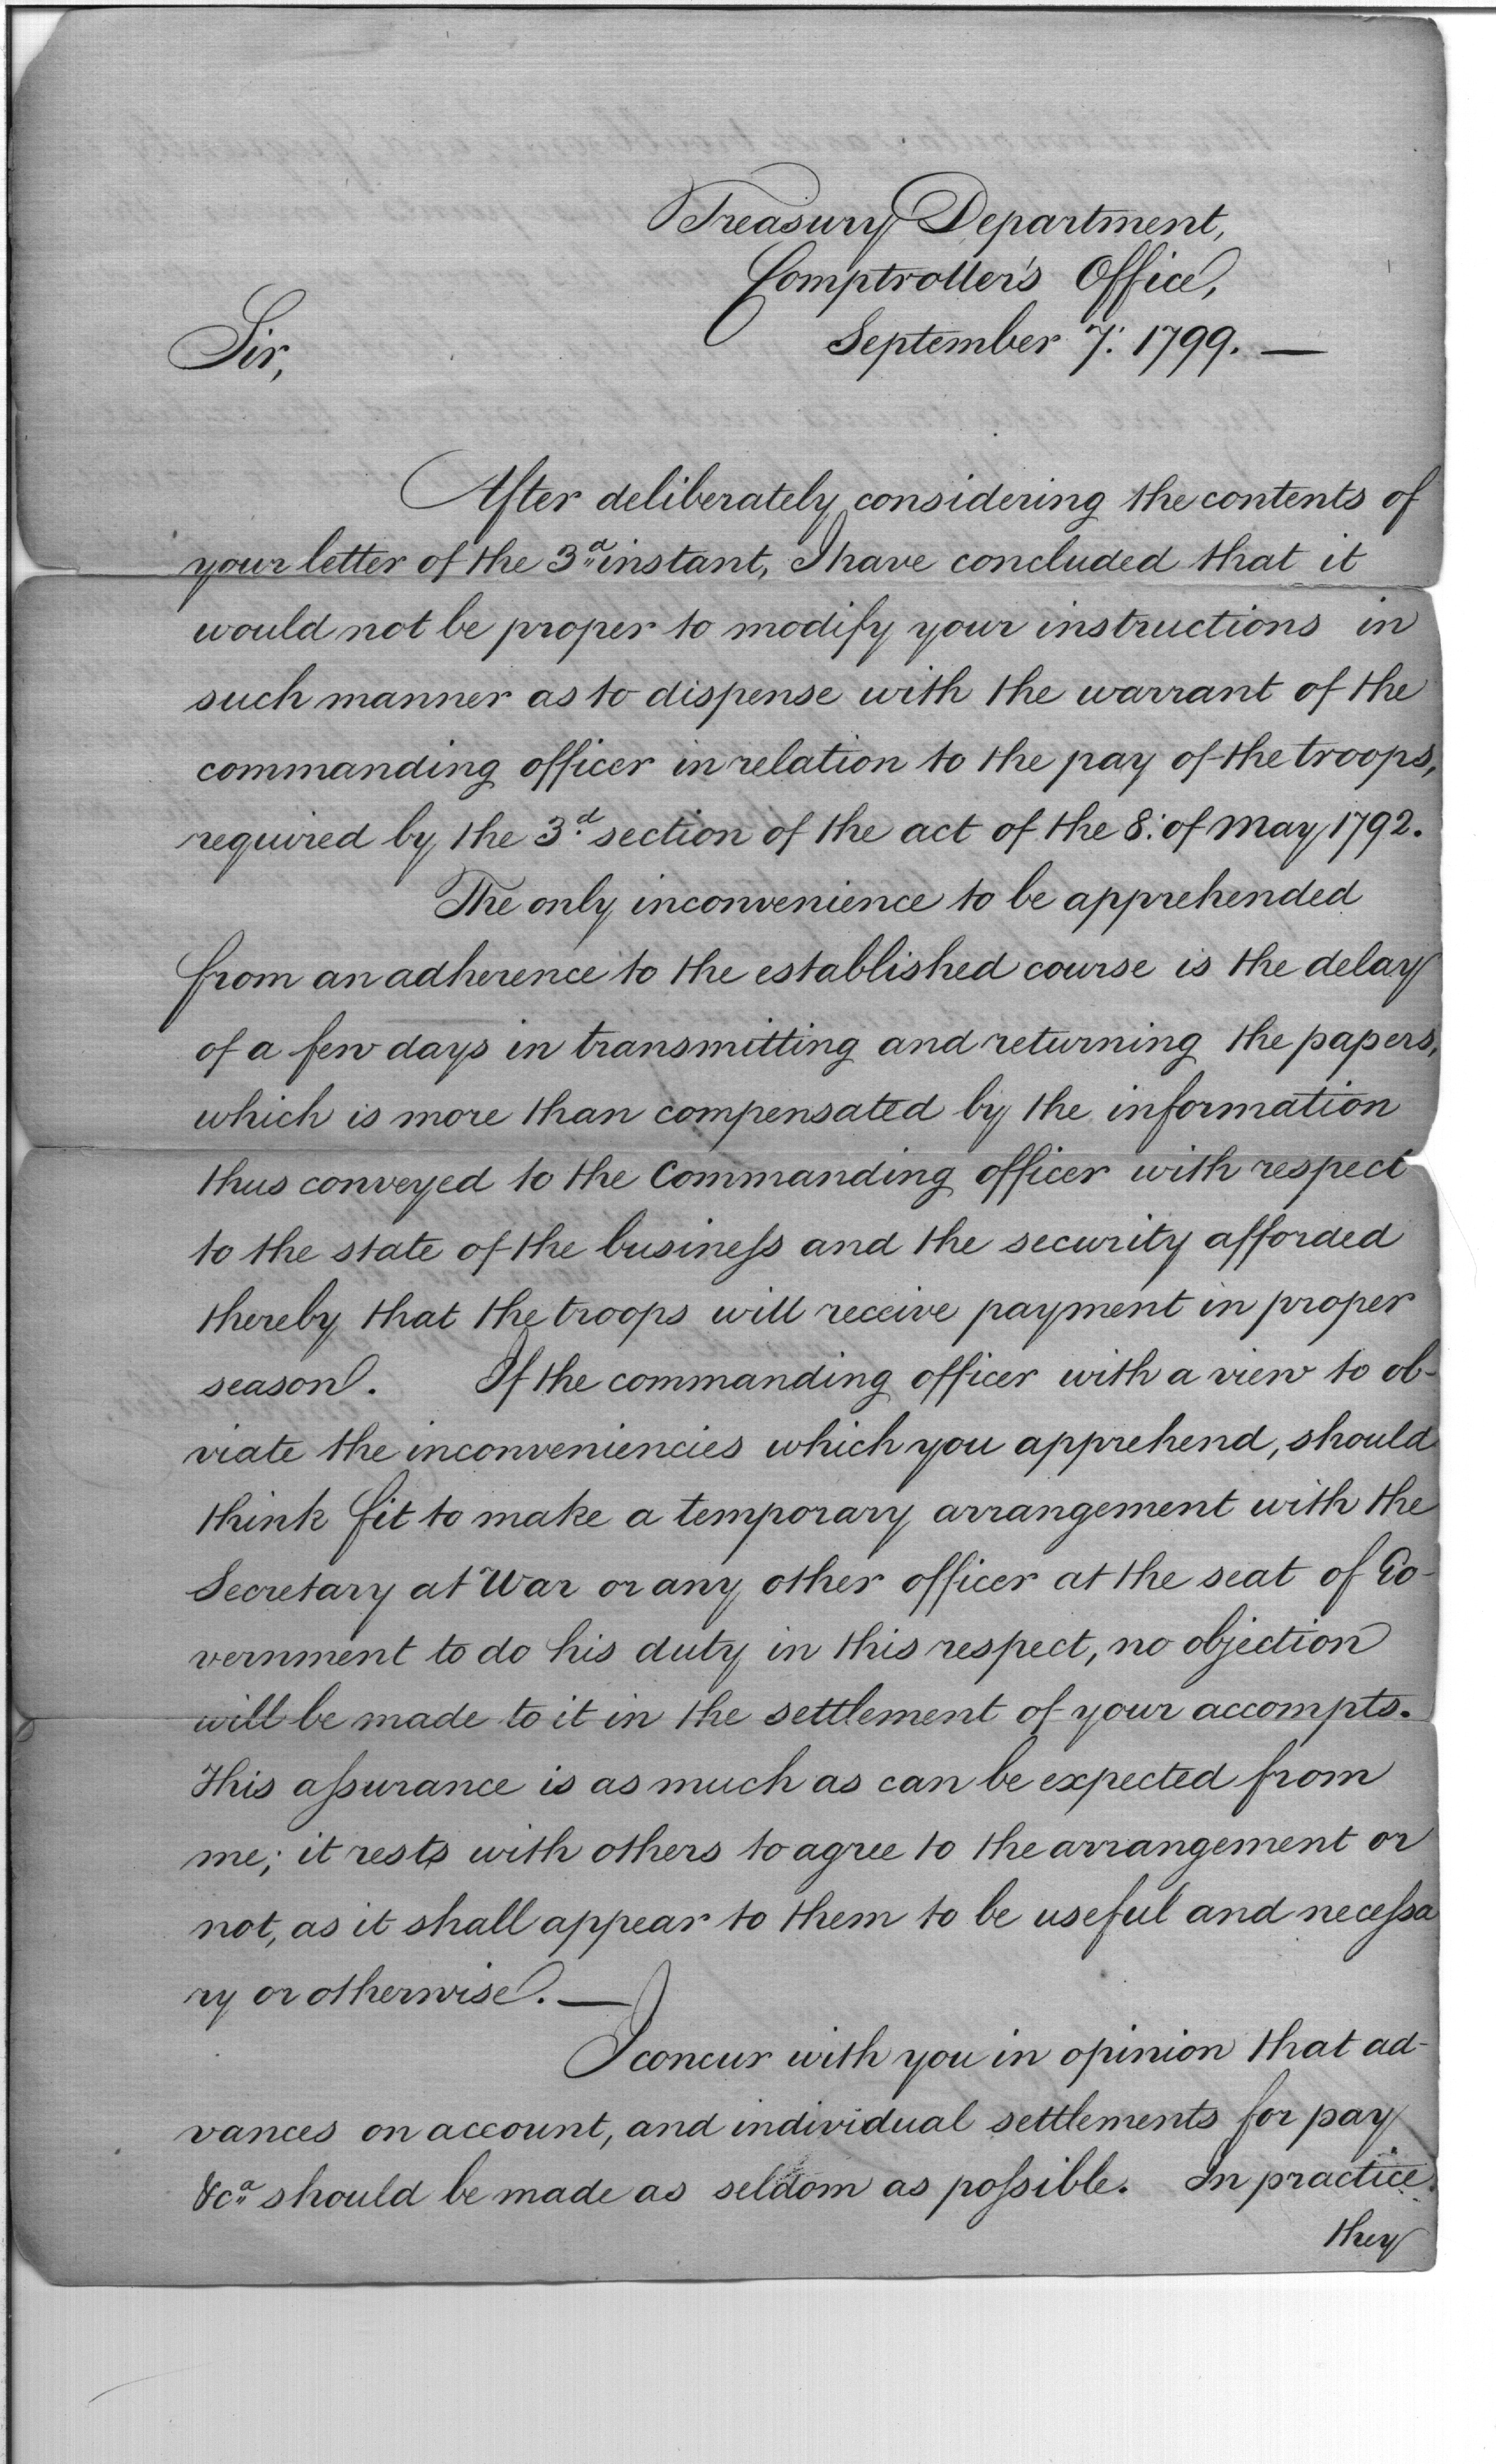 Treasury Department,
Comptroller's Office,
September 7. 1799. —
Sir,
After deliberately considering the contents of
your letter of the 3d instant, I have concluded that it
would not be proper to modify your instructions in
such manner as to dispense with the warrant of the
commanding officer in relation to the pay of the troops,
required by the 3d section of the act of the 8. of May 1792.
The only inconvenience to be apprehended
from an adherence to the established course is the delay
of a few days in transmitting and returning the papers,
which is more than compensated by the information
thus conveyed to the Commanding officer with respect
to the state of the busineſs and the security afforded
thereby that the troops will receive payment in proper
season. If the commanding officer with a view to ob-
viate the inconveniencies which you apprehend, should
think fit to make a temporary arrangement with the
Secretary at War or any other officer at the seat of Go-
vernment to do his duty in this respect, no objection
will be made to it in the settlement of your accompts.
This aſsurance is as much as can be expected from
me; it rests with others to agree to the arrangement or
not, as it shall appear to them to be useful and neceſsa
ry or otherwise. —
I concur with you in opinion that ad-
vances on account, and individual settlements for pay
&ca should be made as seldom as poſsible. In practice
they